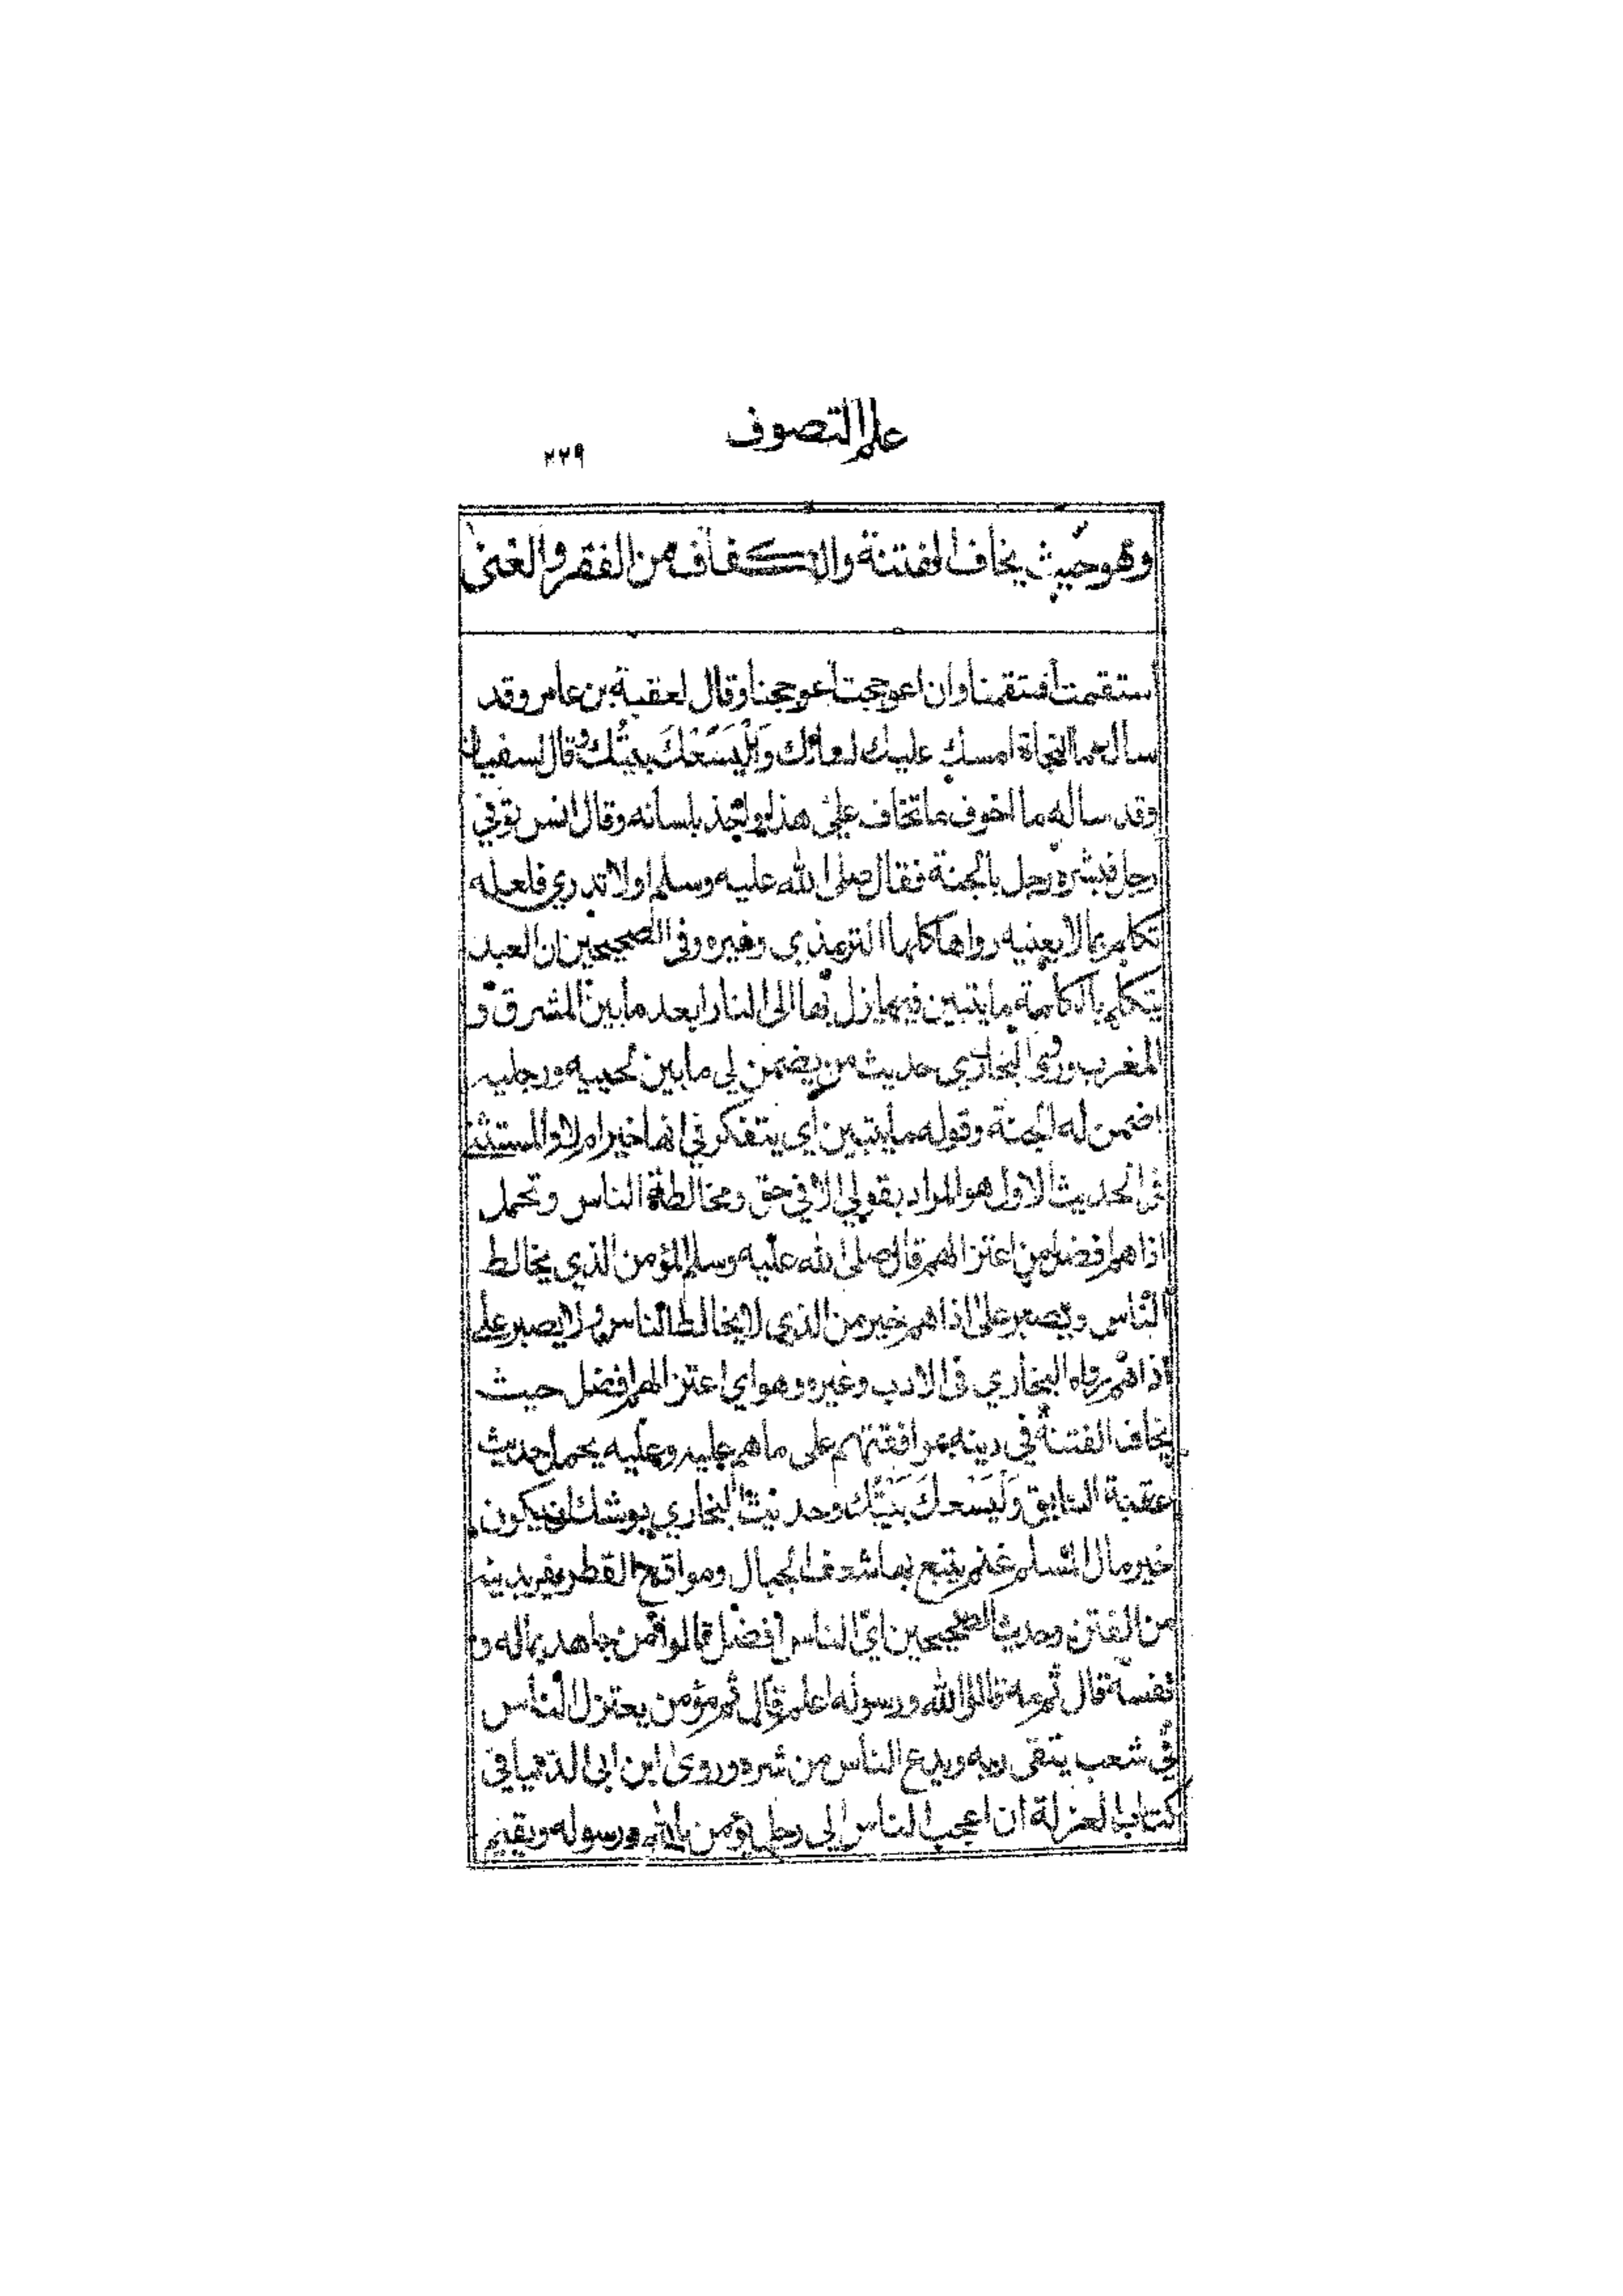 علم التصوف
٢٢٩
وهو حيث يخاف الفتنة والكفاف من الفقر والغنى
استقمت استقمنا وان اعوججت اعوججنا وقال لعقبة بن عامر وقد
ساله ما النجاة امسك عليك لسانك وَلْيَسَعْكَ بيتُك وقال لسفيان
وقد ساله ما اخوف ما تخاف علىّ هذا واخذ بلسانه وقال انس توفي
رجل فبشره رجل بالجنة فقال صلى الله عليه وسلم اولا تدري فلعله
تكلم بما لا يعنيه رواها كلها الترمذي وغيره وفى الصحيحين ان العبد
يتكلم بالكلمة ما يتبين فيها يزل بها الى النار ابعد ما بين المشرق و
المغرب وروى البخاري حديث من يضمن لي ما بين لحييه ورجليه
اضمن له الجنة وقوله ما يتبين اي يتفكر في انها خير ام لا والمستثنى
فى الحديث الاول هو المراد بقولي الا في حق ومخالطة الناس وتحمل
اذاهم افضل من اعتزالهم قال صلى الله عليه وسلم المؤمن الذي يخالط
الناس ويصبر على اذاهم خير من الذي لا يخالط الناس ولا يصبر على
اذاهم رواه البخاري فى الادب وغيره وهو اي اعتزالهم افضل حيث
يخاف الفتنة في دينه بموافقتهم على ما هم عليه وعليه يحمل حديث
عقبة السابق وَلْيَسَعكَ بَيْتُك وحديث البخاري يوشك ان يكون
خير مال المسلم غنم يتبع بها شعف الجبال ومواقع القطر يفر بدينه
من الفتن وحديث الصحيحين ايّ الناس افضل قالوا من جاهد بماله و
نفسه قال ثم مه قالوا الله ورسوله اعلم قال ثم مؤمن يعتزل الناس
في شعب يتقى ربه ويدع الناس من شره وروى ابن ابى الدنيا في
كتاب العزلة ان اعجب الناس الى رجل يؤمن بالله ورسوله ويقيم